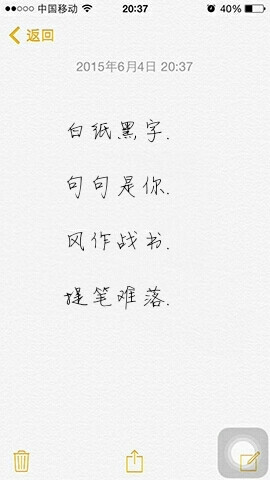 中国移动 20:37 40%
返回
2015年6月4日 20:37
白纸黑字.
句句是你.
风作战书.
提笔难落.